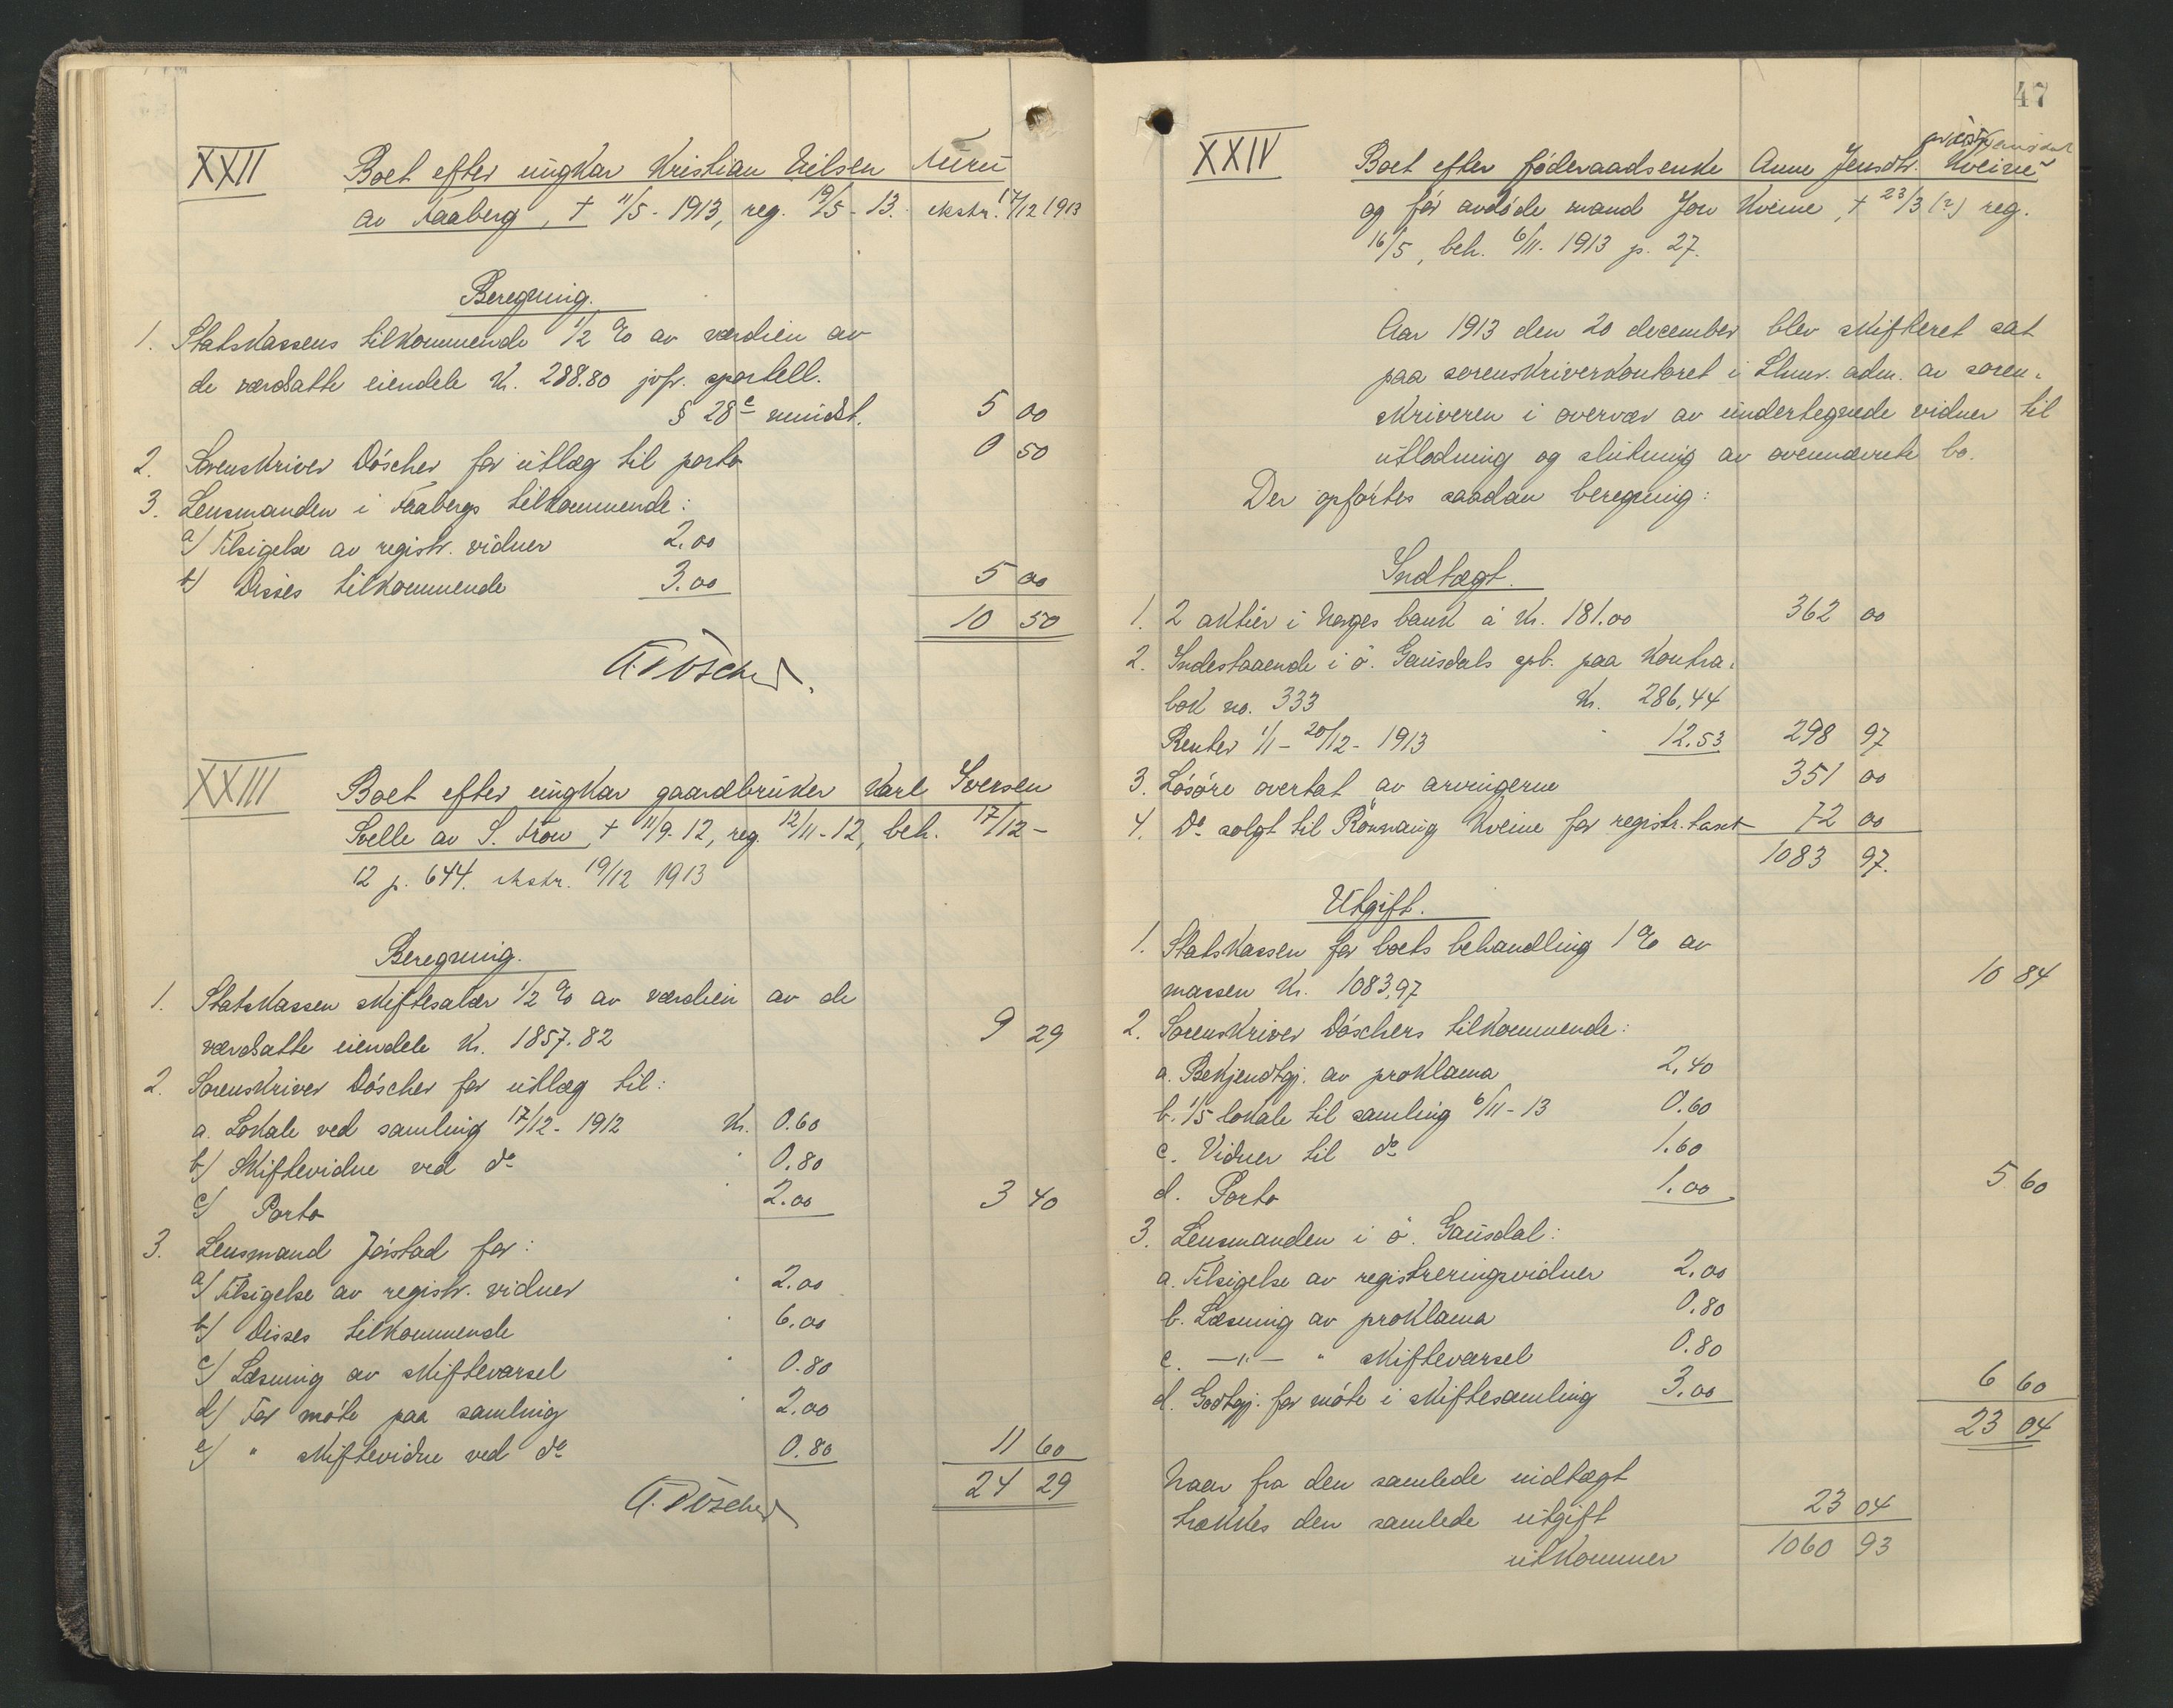 XXII
Boet efter ungkar Kristian Nilsen Muru
av Faaberg, † 11/5 - 1913, reg. 19/5 - 13. ekstr. 17/12 1913
Beregning.
1. Statskassens tilkommende 1/2 % av værdien av
de værdsatte eiendele Kr. 288.80 jvfr. sportell.
§ 28 c mindst. 5 00
2. Sorenskriver Döscher for utlæg til porto 0 50
3. Lensmanden i Faabergs tilkommende:
a) Tilsigelse av registr. vidner 2.00
b) Disses tilkommende 3.00 5 00
10 50
A. Döscher
XXIII
Boet efter ungkar gaardbruker Karl Iversen
Selle av S. Fron, † 11/9 - 12, reg. 12/11 - 12, beh. 17/12 -
12 p. 644. ekstr. 19/12 1913
Beregning.
1. Statskassen skiftesalær 1/2 % av værdien av de
værdsatte eiendele Kr. 1857.82 9 29
2. Sorenskriver Döscher for utlæg til:
a. Lokale ved samling 17/12 - 1912 Kr. 0.60
b) Skiftevidne ved do " 0.80
c) Porto " 2.00 3 40
3. Lensmand Jörstad for:
a) Tilsigelse av registr. vidner " 2.00
b) Disses tilkommende " 6.00
c) Læsning av skiftevarsel " 0.80
d) For möte paa samling " 2.00
e) " skiftevidne ved do 0.80 11 60
24 29
A. Döscher
47
XXIV
av östre Gausdal
Boet efter föderaadsenke Anne Jensdtr. Kveine
og før avdöde mand Jon Kveine, † 23/3 (?) reg.
16/5, beh. 6/11 - 1913 p. 27.
Aar 1913 den 20 december blev skifteret sat
paa sorenskriverkontoret i Lhmr. adm. av soren-
skriveren i overvær av undertegnede vidner til
utlodning og slutning av ovennævnte bo.
Der opførtes saadan beregning:
Indtægt.
1. 2 aktier i Norges bank á Kr. 181.00 362 00
2. Indestaaende i ö. Gausdals spb. paa kontra-
bok no. 333 Kr. 286,44
Renter 1/1 - 20/12 - 1913 " 12.53 298 97
3. Lösöre overtat av arvingerne 351 00
4. Do solgt til Rönnaug Kveine for registr. takst 72 00
1083 97.
Utgift.
1. Statskassen for boets behandling 1 % av
massen Kr. 1083,97 10 84
2. Sorenskriver Döschers tilkommende:
a. Bekjendtgj. av proklama 2,40
b. 1/5 lokale til samling 6/11 - 13 0.60
c. Vidner til do 1.60
d. Porto 1.00 5 60
3. Lensmanden i ö. Gausdal:
a. Tilsigelse av registreringsvidner 2.00
b. Læsning av proklama 0.80
c. —"— " skiftevarsel 0.80
d. Godtgj. for möte i skiftesamling 3.00 6 60
23 04
Naar fra den samlede indtægt
trækkes den samlede utgift 23 04
utkommer 1060 93